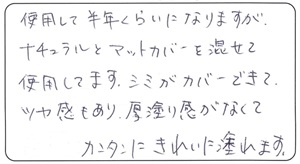 使用して半年くらいになりますが、
ナチュラルとマットカバーを混ぜて
使用してます。シミがカバーできて、
ツヤ感もあり、厚塗り感がなくて
カンタンにきれいに塗れます。